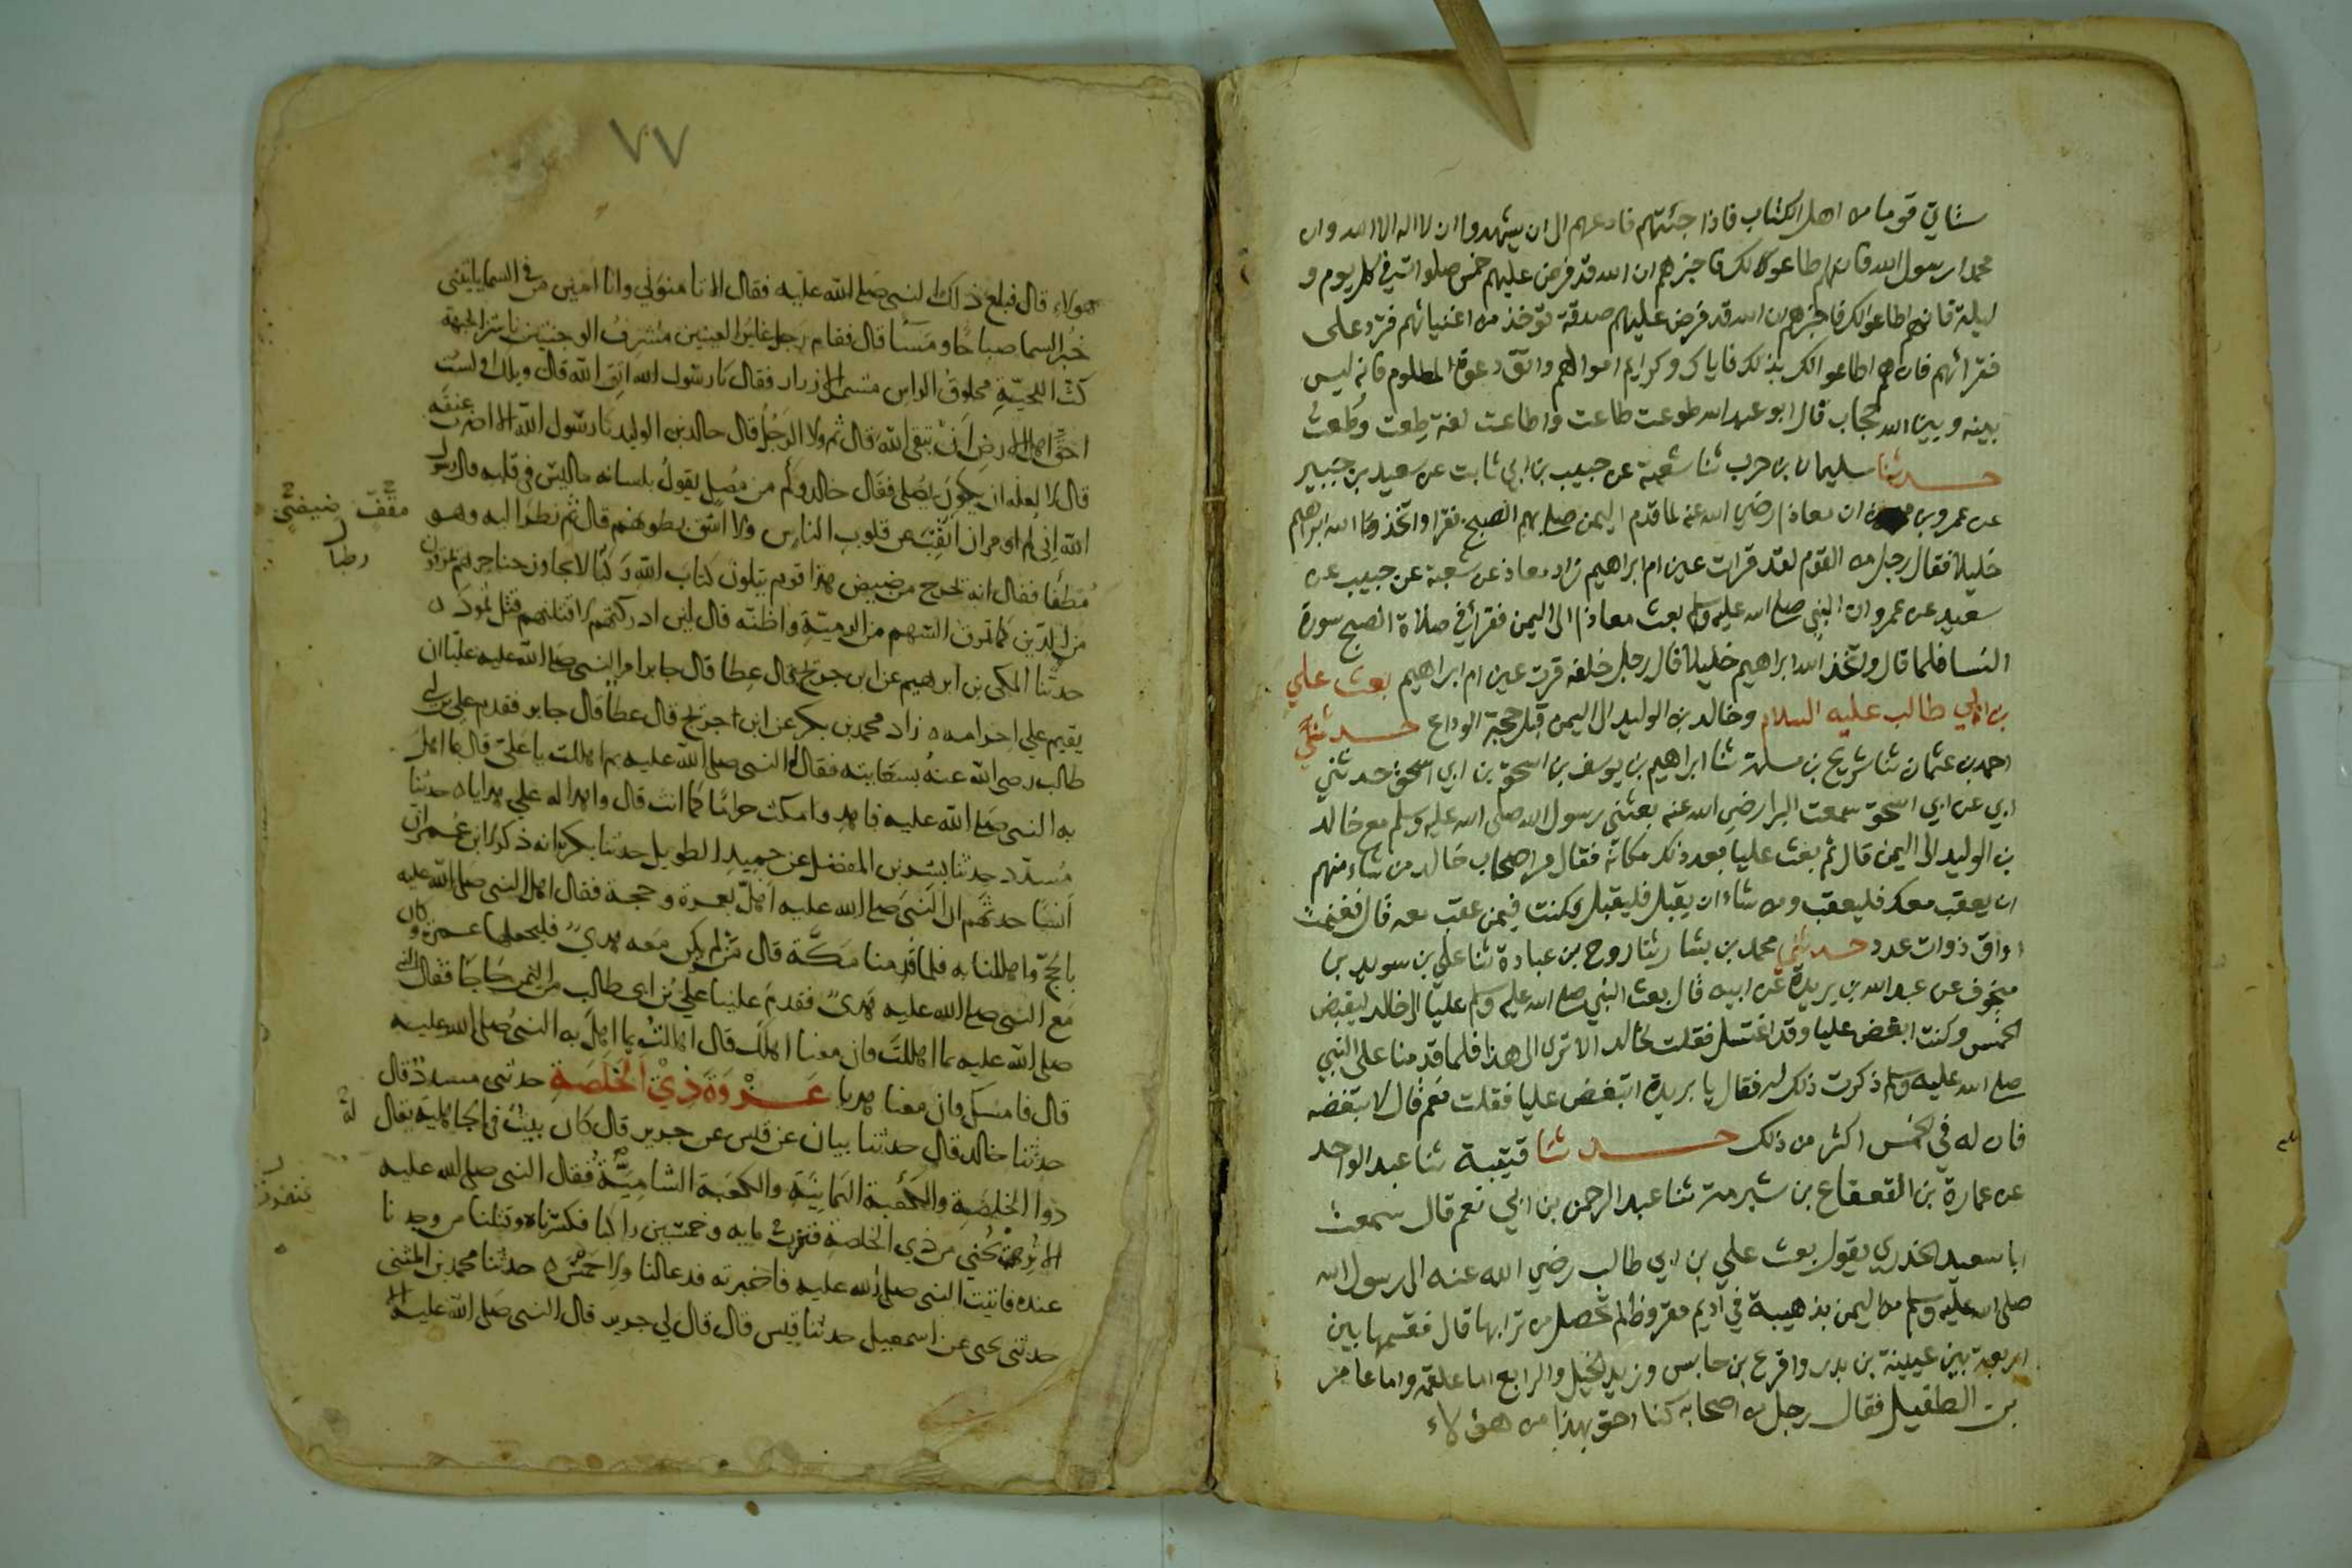 ستاتي قوما من اهل الكتاب فاذا جئتهم فادعهم الى ان يشهدوا ان لا اله الا الله وان
محمدا رسول الله فان هم اطاعوا لك فاخبرهم ان الله قد فرض عليهم خمس صلوات في كل يوم و
ليلة فان هم اطاعوا لك فاخبرهم ان الله قد فرض عليهم صدقة توخذ من اغنيائهم فترد على
فقرائهم فان هم اطاعوا لك بذلك فاياك وكرايم اموالهم واتق دعوة المظلوم فانه ليس
بينه وبين الله حجاب قال ابو عبد الله طوعت طاعت واطاعت لغة طعت وطعت
حدثنا سليمان بن حرب ثنا شعبة عن حبيب بن ابي ثابت عن سعيد بن جبير
عن عمرو بن ان معاذا رضي الله عنه لما قدم اليمن صلى بهم الصبح فقرا واتخذ الله ابراهيم
خليلا فقال رجل من القوم لقد قرات عين ام ابراهيم زاد معاذ عن شعبة عن حبيب عن
سعيد عن عمرو ان النبي صلى الله عليه وسلم بعث معاذا الى اليمن فقرا في صلاة الصبح سورة
النسا فلما قال واتخذ الله ابراهيم خليلا قال رجل خلفه قرت عين ام ابراهيم بعث علي
بن ابي طالب عليه السلام وخالد بن الوليد الى اليمن قبل حجة الوداع حدثني
احمد بن عثمان ثنا شريح بن مسلمة ثنا ابراهيم بن يوسف بن اسحق بن ابي اسحق حدثني
ابي عن ابي اسحق سمعت البرا رضي الله عنه بعثني رسول الله صلى الله عليه وسلم مع خالد
بن الوليد الى اليمن قال ثم بعث عليا بعد ذلك مكانه فقال مر اصحاب خالد من شاء منهم
ان يعقب معك فليعقب ومن شاء ان يقبل فليقبل فكنت فيمن عقب معه قال فغنمت
اواق ذوات عدد حدثني محمد بن بشار ثنا روح بن عبادة ثنا علي بن سويد بن
منجوف عن عبد الله بن بريدة عن ابيه قال بعث النبي صلى الله عليه وسلم عليا الى خالد ليقبض
الخمس وكنت ابغض عليا وقد اغتسل فقلت لخالد الا ترى الى هذا فلما قدمنا على النبي
صلى الله عليه وسلم ذكرت ذلك له فقال يا بريدة اتبغض عليا فقلت نعم قال لا تبغضه
فان له في الخمس اكثر من ذلك حدثنا قتيبة ثنا عبد الواحد
عن عمارة بن القعقاع بن شبرمة ثنا عبد الرحمن بن ابي نعم قال سمعت
ابا سعيد الخدري يقول بعث علي بن ابي طالب رضي الله عنه الى رسول الله
صلى الله عليه وسلم من اليمن بذهيبة في اديم مقروظ لم تحصل من ترابها قال فقسمها بين
اربعة بين عيينة بن بدر واقرع بن حابس وزيد الخيل والرابع اما علقمة واما عامر
بن الطفيل فقال رجل من اصحابه كنا احق بهذا من هؤلاء
٧٧
هولاء قال فبلغ ذلك النبي صلى الله عليه فقال الا تامنوني وانا امين من في السما ياتيني
خبر السما صباحا ومسا قال فقام رجل غاير العينين مشرف الوجنتين ناشز الجبهة
كث اللحية محلوق الراس مشمر الازار فقال يا رسول الله اتق الله قال ويلك اولست
احق اهل الارض ان يتقي الله قال ثم ولا الرجل قال خالد بن الوليد يا رسول الله الا اضرب عنقه
قال لا لعله ان يكون يصلي فقال خالد وكم من مصل يقول بلسانه ما ليس في قلبه قال رسول
الله اني لم اومر ان انقب عن قلوب الناس ولا اشق بطونهم قال ثم نظر اليه وهو
مقف ضيضئ
رطبا
فقال انه يخرج من ضيضي هذا قوم يتلون كتاب الله رطبا لا يجاوز حناجرهم يمرقون
من الدين كما تمرق السهم من الرمية واظنه قال لين ادركتهم لاقتلنهم قتل ثمود ه
حدثنا المكي بن ابرهيم عن ابن جريج قال عطا قال جابر امر النبي صلى الله عليه عليا ان
يقيم علي احرامه ه زاد محمد بن بكر عن ابن جريج قال عطا قال جابر فقدم علي بن ابي
طالب رضي الله عنه بسعايته فقال له النبي صلى الله عليه بم اهللت يا علي قال بما اهل
به النبي صلى الله عليه فاهد وامكث حراما كما انت قال واهدا له علي هديا ه حدثنا
مسدد حدثنا بشر بن المفضل عن حميد الطويل حدثنا بكر انه ذكر لابن عمر ان
انسا حدثهم ان النبي صلى الله عليه اهل بعمرة وحجة فقال اهل النبي صلى الله عليه
بالحج واهللنا به فلما قدمنا مكة قال من لم يكن معه هدي فليجعلها عمرة وكان
مع النبي صلى الله عليه هدي فقدم علينا علي بن ابي طالب من اليمن حاجا فقال النبي
صلى الله عليه بما اهللت فان معنا اهلك قال اهللت بما اهل به النبي صلى الله عليه
قال فامسك فان معنا هديا غزوة ذي الخلصة حدثني مسدد قال
حدثنا خالد قال حدثنا بيان عن قيس عن جرير قال كان بيت في الجاهلية يقال
له
ذوا الخلصة والكعبة اليمانية والكعبة الشامية فقال النبي صلى الله عليه
الا تريحني من ذي الخلصة فنفرت مايه وخمسين راكبا فكسرناه وقتلنا من وجدنا
عنده فاتيت النبي صلى الله عليه فاخبرته فدعا لنا ولاحمس ه حدثنا محمد بن المثنى
حدثني يحيى عن اسمعيل حدثنا قيس قال قال لي جرير قال النبي صلى الله عليه الا